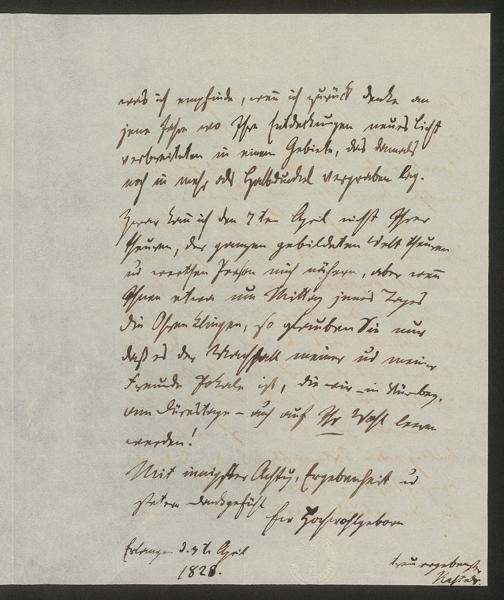 was ich empfinde, wenn ich zurück denke an
jene Jahre wo Ihre Entdeckungen neues Licht
verbreiteten in einem Gebiete, das damals
noch in mehr als Halbdunkel vergraben lag.
Zwar kann ich den 7ten April nicht Ihrer
theuren, der ganzen gebildeten Welt theuren
und werthen Person mich nähern, aber wenn
Ihnen etwa um Mittag jenes Tages
die Ohren klingen, so glauben Sie nur
daß es der Nachhall meiner ud meiner
Freunde Pokale ist, die wir in Nürnberg,
am Dürerstage – auch auf Ihr Wohl leeren
werden!
Mit innigster Achtung, Ergebenheit ud
stetem Dankgefühl
Euer Hochwohlgeborn
Erlangen d. ten April
1828.
treu ergebenster
Kastner.